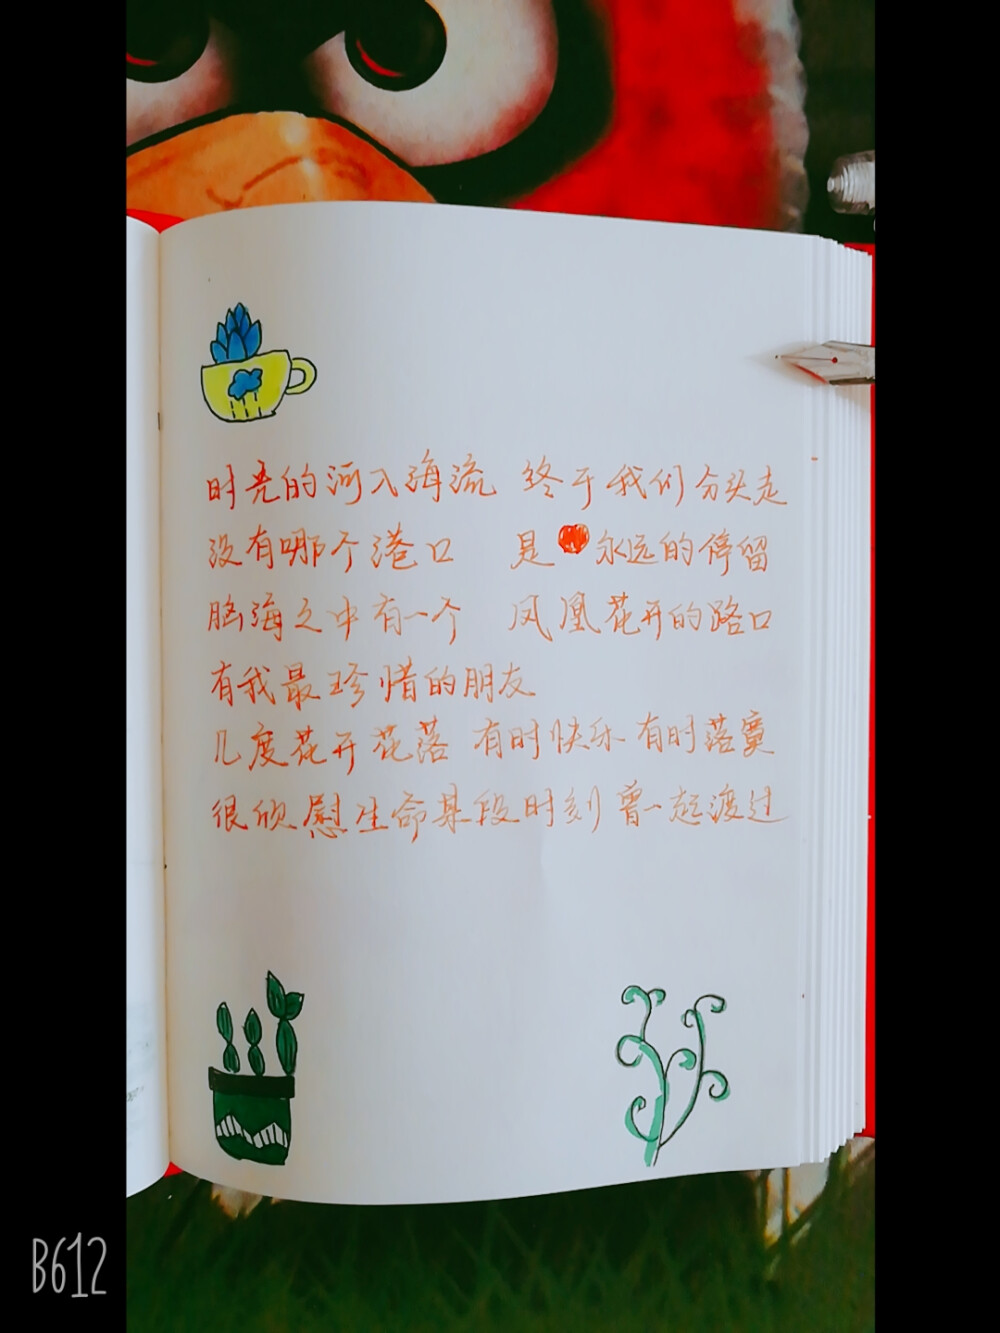 时光的河入海流 终于我们分头走
没有哪个港口 是永远的停留
脑海之中有一个 凤凰花开的路口
有我最珍惜的朋友
几度花开花落 有时快乐 有时落寞
很欣慰生命某段时刻 曾一起渡过
B612